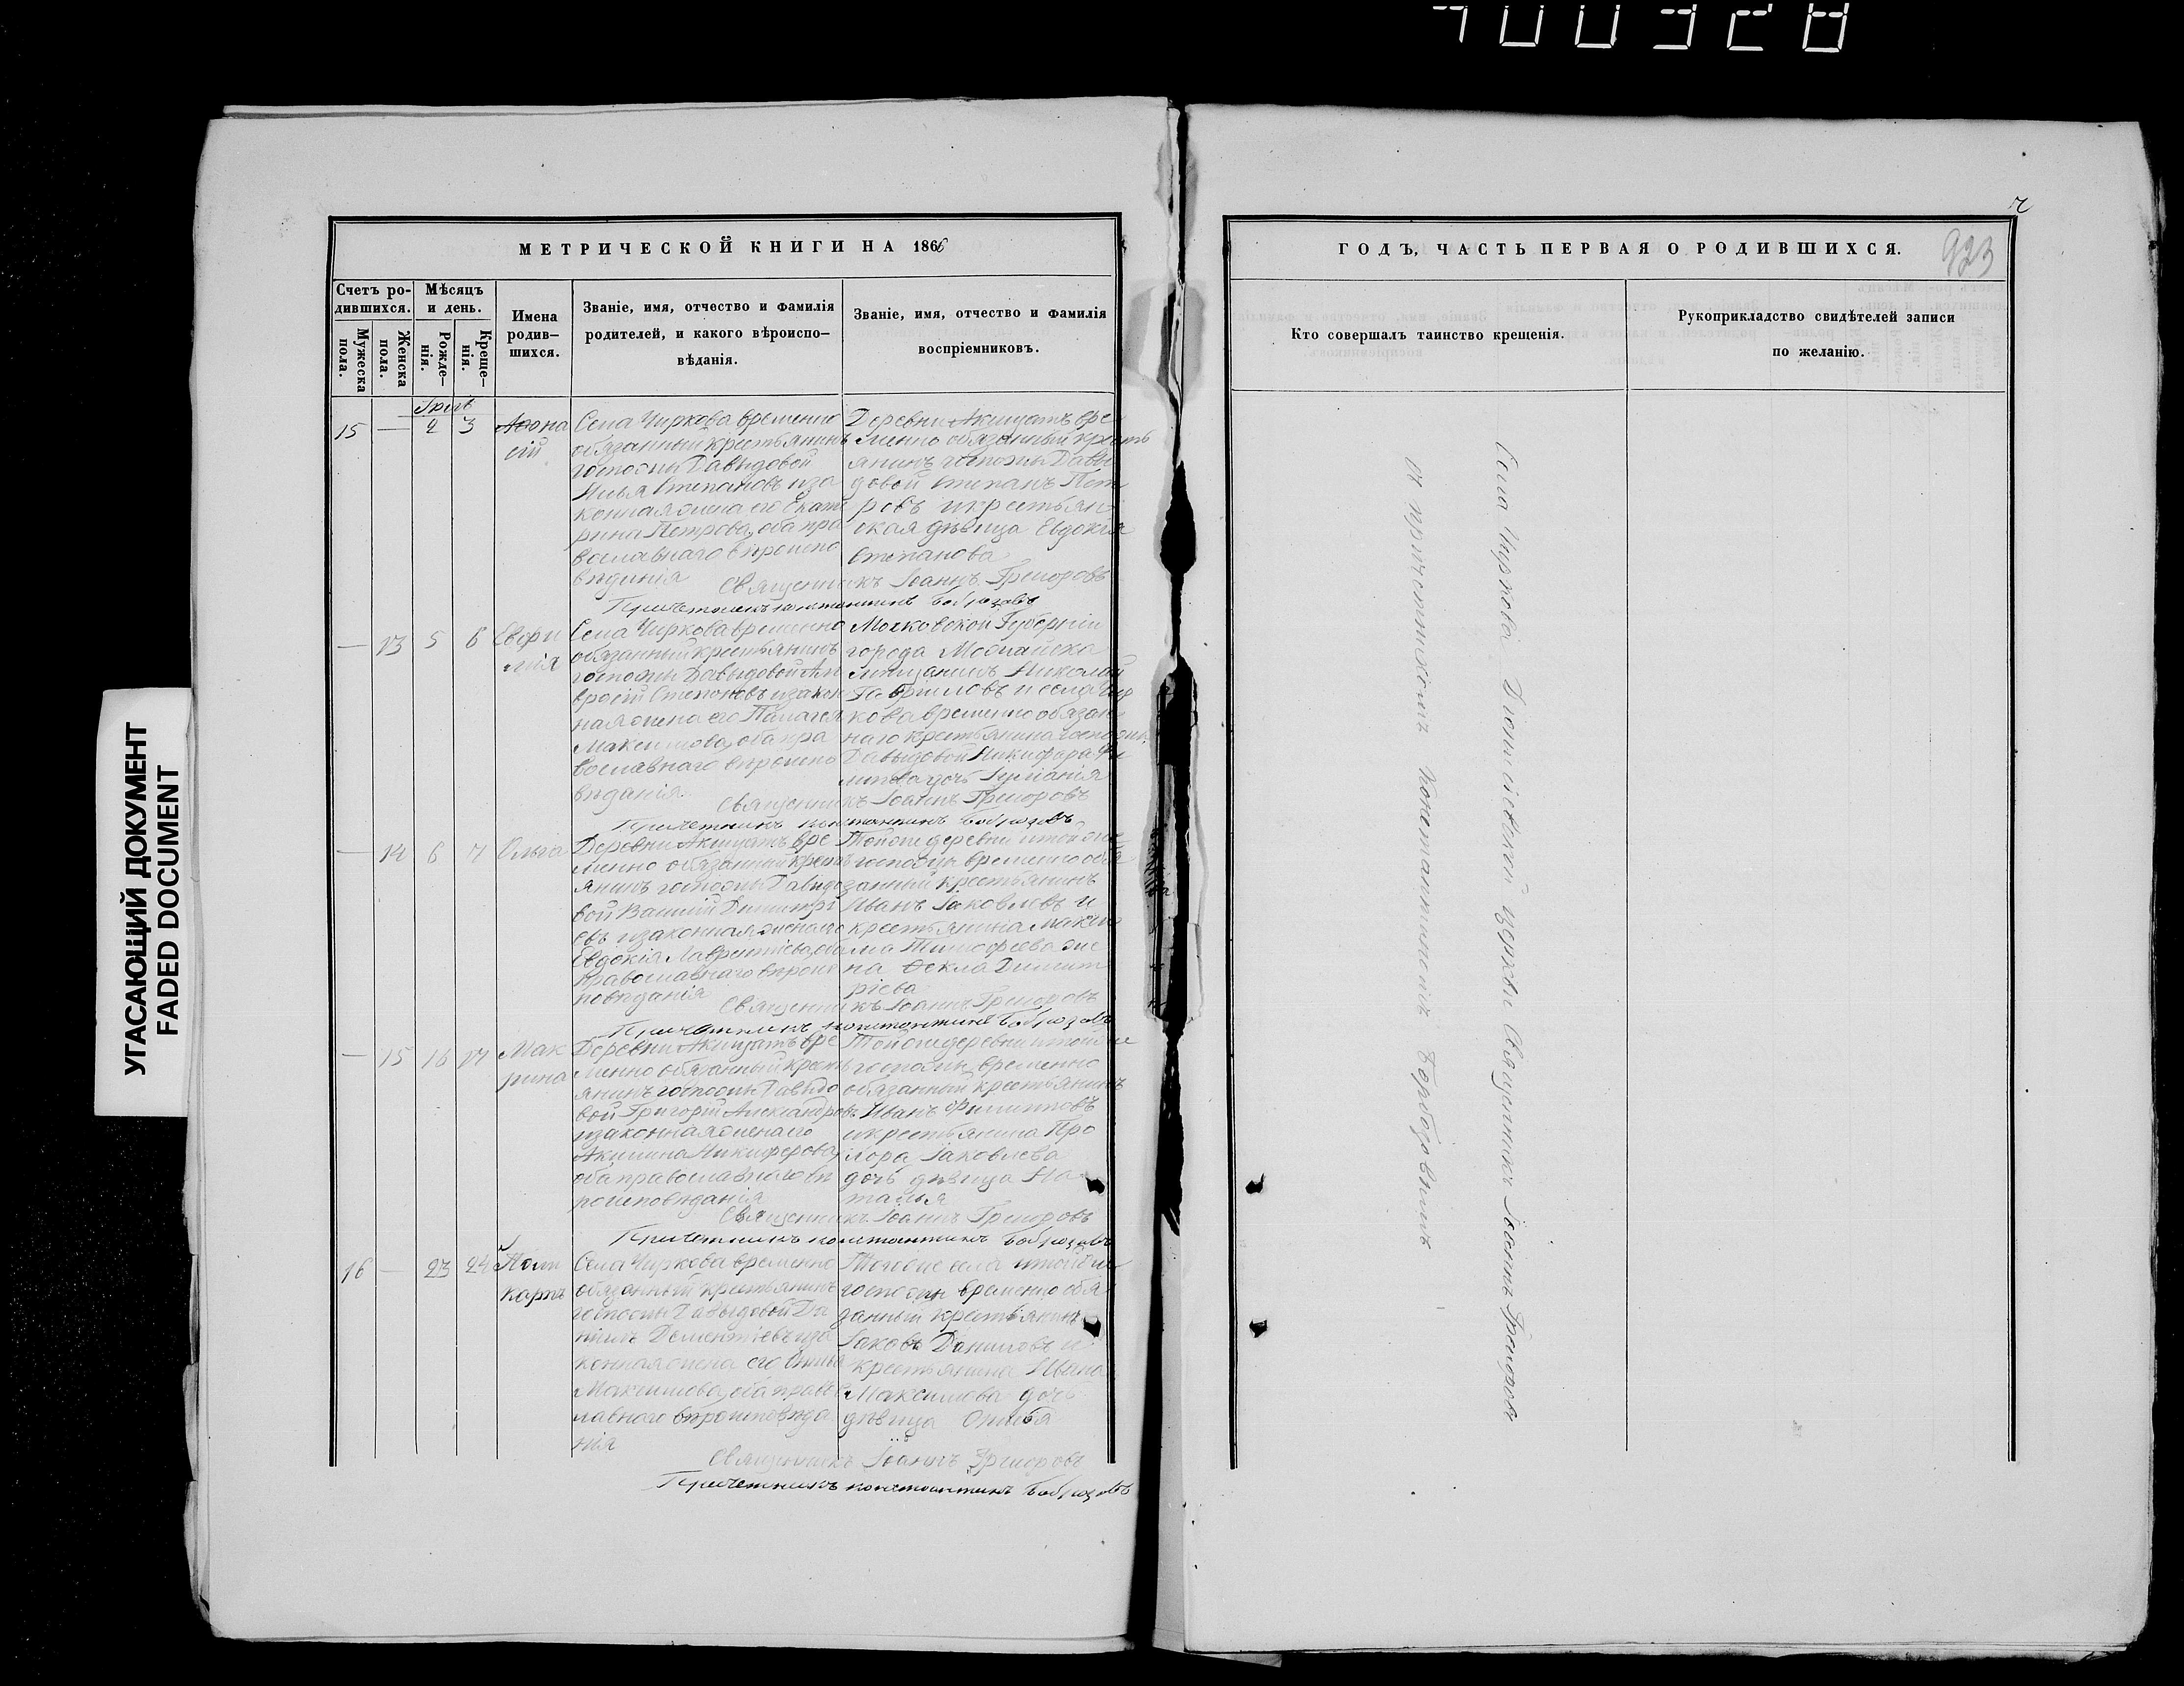 400328
УГАСАЮЩИЙ ДОКУМЕНТ
FADED DOCUMENT
МЕТРИЧЕСКОЙ КНИГИ НА 1866
Счетъ ро-
дившихся.
Мужеска
пола.
Женска
пола.
Мѣсяцъ
и день.
Рожде-
нія.
Креще-
нія.
Имена
родив-
шихся.
Званіе, имя, отчество и фамилія
родителей, и какого вѣроиспо-
вѣданія.
Званіе, имя, отчество и фамилія
воспріемниковъ.
15 — 2 3
Аѳона
сій
Села Чиркова временно
обязанный крестьянинъ
госпожи Давыдовой
Илья Степановъ иза
конная жена его Екате
рина Петрова, оба пра
вославнаго вѣроиспо
вѣданія
Деревни Акищатъ вре
менно обязанный кресть
янинъ госпожи Давы
довой Степанъ Пет
ровъ икрестьян
ская дѣвица Евдокія
Степанова
Священникъ Іоаннъ Григоровъ
Причетникъ константинъ
— 13 5 6
Евфи
мія
Села Чиркова временно
обязанный крестьянинъ
госпожи Давыдовой Ам
вросій Степановъ изакон
ная жена его Пелагея
Максимова, оба пра
вославнаго вѣроиспо
вѣданія.
Московской Губерніи
города Можайска
мѣщанинъ Николай
Гавриловъ и села Чир
кова временно обязан
наго крестьянина госпожи
Давыдовой Никифора Фи
липова дочь
Священникъ Іоаннъ Григоровъ
Причетникъ константинъ
— 14 6 7
Ольга
Деревни Акищатъ вре
менно обязанный кресть
янинъ госпожи Давыдо
вой Василій Димитрі
евъ изаконная жена его
Евдокія Лаврентіева, оба
православнаго вѣроис
повѣданія
Тойже деревни итойже
госпожи временно обя
занный крестьянинъ
Иванъ Іаковлевъ и
крестьянина Макси
ма Тимофеева же
на Ѳекла Димит
ріева
Священникъ Іоаннъ Григоровъ
Причетникъ константинъ
— 15 16 17
Мак
рина
Деревни Акищатъ вре
менно обязанный кресть
янинъ госпожи Давыдо
вой Григорій Александровъ
изаконная жена его
Акилина Никифорова,
оба православнаго вѣ
роисповѣданія
Тойже деревни итойже
госпожи временно
обязанный крестьянинъ
Иванъ Филипповъ
икрестьянина Про
хора Іаковлева
дочь дѣвица На
талья
Священникъ Іоаннъ Григоровъ
Причетникъ константинъ
16 — 23 24
Поли
карпъ
Села Чиркова временно
обязанный крестьянинъ
госпожи Давыдовой Да
ніилъ Дементіевъ иза
конная жена его
Максимова, оба правос
лавнаго вѣроисповѣда
нія
Тогоже села итойже
госпожи временно обя
занный крестьянинъ
Іаковъ Даниловъ и
крестьянина Ивана
Максимова дочь
дѣвица
Священникъ Іоаннъ Григоровъ
Причетникъ константинъ
ГОДЪ, ЧАСТЬ ПЕРВАЯ О РОДИВШИХСЯ.
923
Кто совершалъ таинство крещенія.
Рукоприкладство свидѣтелей записи
по желанію.
Села Чиркова церкви Священникъ Іоаннъ Григоровъ
съ причетникомъ Константиномъ